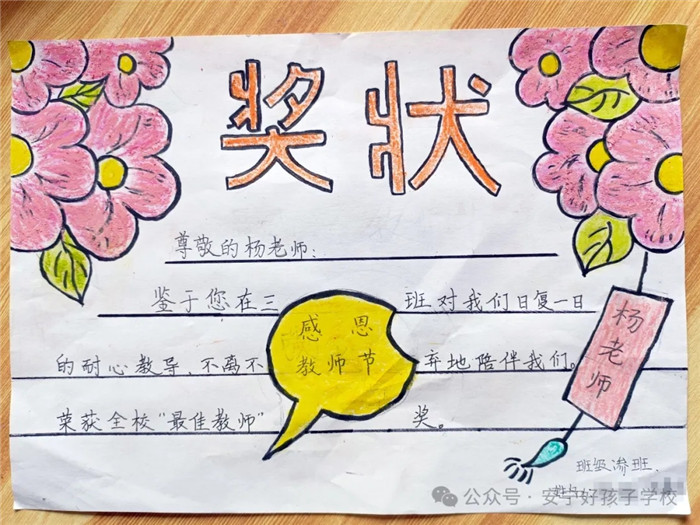 奖状
尊敬的杨老师:
鉴于您在三 班对我们日复一日
的耐心教导、不离不 弃地陪伴我们。
荣获全校“最佳教师” 奖。
感恩
教师节
杨老师
班级:叁班
公众号·安宁好孩子学校